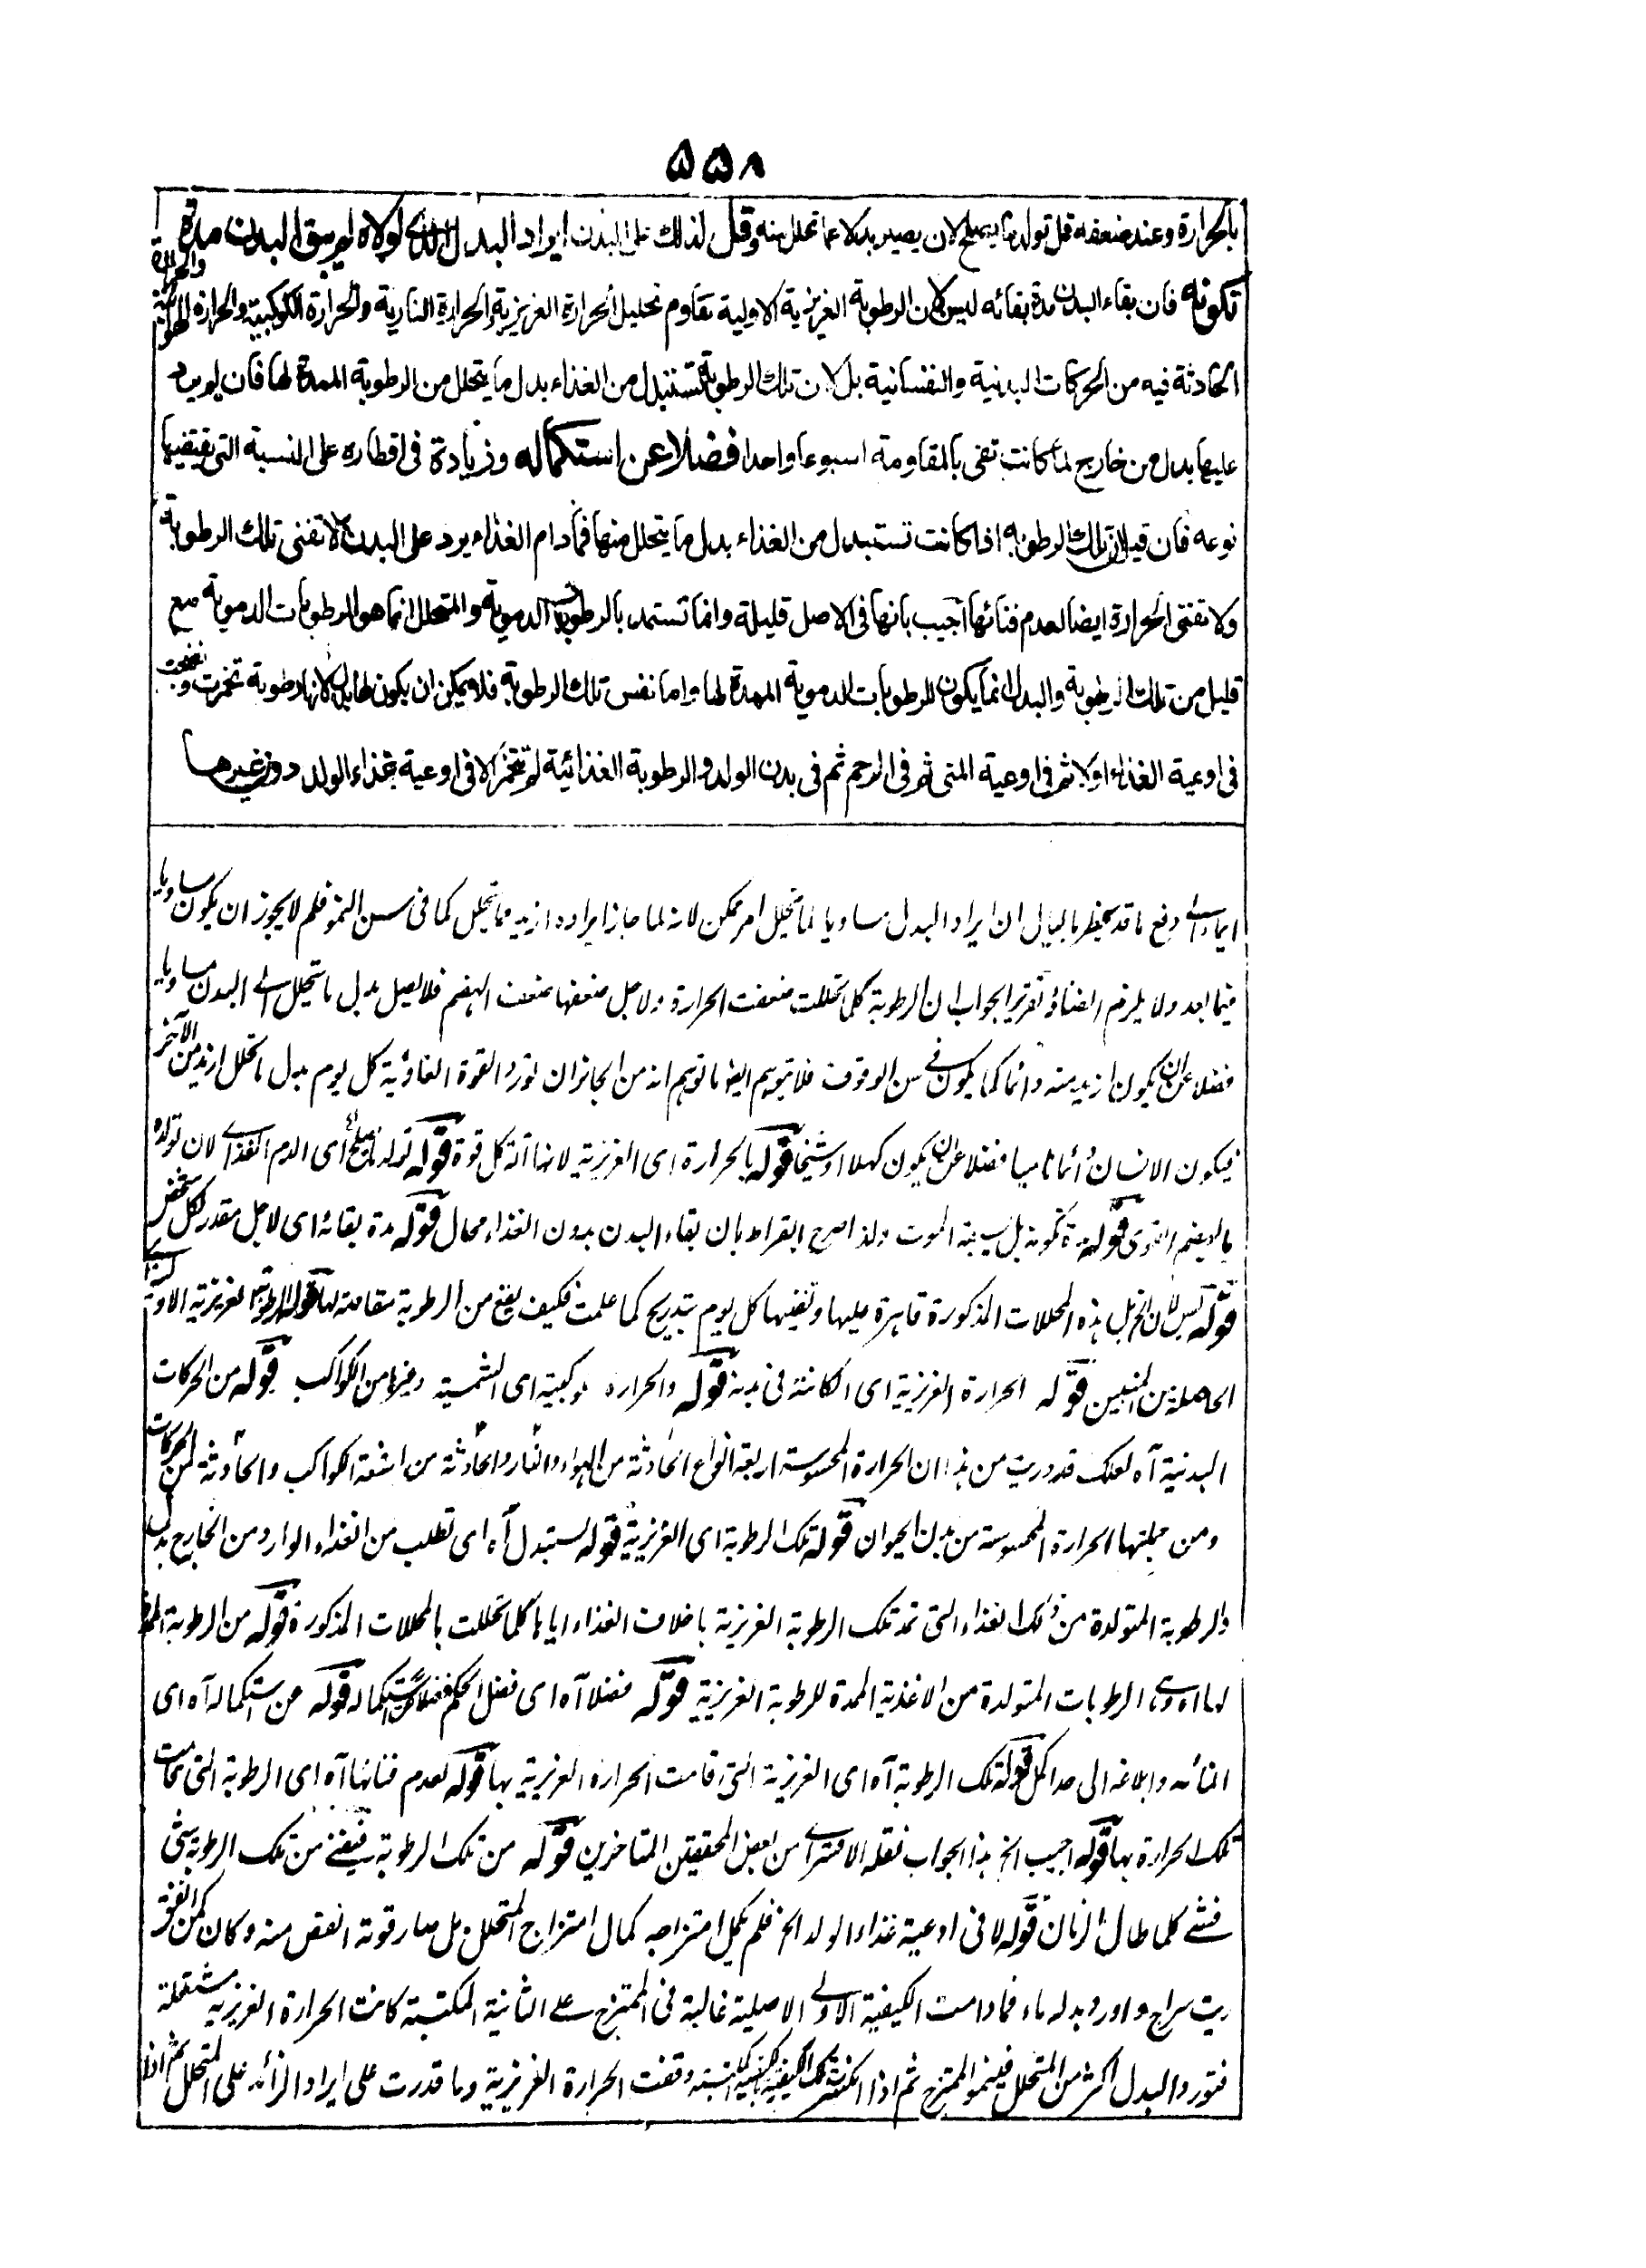 ۵۵۸
بالحرارة وعند ضعفه قل تولد ما يصلح لان يصير بدلا عما تحلل منه وقل لذلك على البدن ايراد البدل الذي لولاه لم يبق البدن مدة
تكونه فان بقاء البدن مدة بقائه ليس لان الرطوبة الغريزية الاولية تقاوم تحليل الحرارة الغريزية والحرارة النارية والحرارة الكوكبية والحرارة الهوائية والحرارة
الحادثة فيه من الحركات البدنية والنفسانية بل لان تلك الرطوبة تستبدل من الغذاء بدل ما يتحلل من الرطوبة الممدة لها فان لم يرد
عليها بدل من خارج لما كانت تفى بالمقاومة اسبوعا واحدا فضلا عن استكماله وزيادة فى اقطاره على النسبة التى يقتضيها
نوعه فان قيل ان تلك الرطوبة اذا كانت تستبدل من الغذاء بدل ما يتحلل منها فما دام الغذاء يرد على البدن لا تفنى تلك الرطوبة
ولا تفنى الحرارة ايضا لعدم فنائها اجيب بانها فى الاصل قليلة وانما تستمد بالرطوبات الدموية والمتحلل انما هو الرطوبات الدموية مع
قليل من تلك الرطوبة والبدل انما يكون للرطوبات الدموية الممدة لها واما نفس تلك الرطوبة فلا يمكن ان يكون لها بدل لانها رطوبة تخمرت ونضجت
فى اوعية الغذاء اولا ثم فى اوعية المنى ثم فى الرحم ثم فى بدن الولد والرطوبة الغذائية لم تتخمر الا فى اوعية غذاء الولد دون غيرها
ايماء الى دفع ما قد يخطر بالبال ان ايراد البدل مساويا لما تحلل امر ممكن لانه لما جاز ايراده ازيد مما تحلل كما فى سن النمو فلم لا يجوز ان يكون مساويا
فيما بعد ولا يلزم الفناء وتقرير الجواب ان الرطوبة كل تحللت ضعفت الحرارة ولاجل ضعفها ضعف الهضم فلا يصل بدل ما يتحلل الى البدن مساويا
فضلا عن ان يكون ازيد منه دائما كما يكون فى سن الوقوف فلا يتوهم ايضا ما توهم انه من الجائز ان تورد القوة الغاذية كل يوم بدل ما تحلل ازيد من الآخر
فيكون الانسان دائما ناميا فضلا عن ان يكون كهلا او شيخا قوله بالحرارة اى الغريزية لانها آلة كل قوة قوله تولد ما يصلح اى الدم الغذائى لان تولده
بالهضم القوى قوله مدة تكونه بل يسبقه الموت ولذا صرح ابقراط بان بقاء البدن بدون الغذاء محال قوله مدة بقائه اى لاجل مقدر لكل شخص
قوله ليس لان الخ بل هذه المحللات المذكورة قاهرة عليها وتفنيها كل يوم بتدريج كما علمت فكيف يقع من الرطوبة مقاومة لها قوله الرطوبة الغريزية الاولية
الحاصلة من المنيين قوله الحرارة الغريزية اى الكائنة فى بدنه قوله والحرارة الكوكبية اى الشمسية وغيرها من الكواكب قوله من الحركات
البدنية آه لعلك قد دريت من هذا ان الحرارة المحسوسة اربعة انواع الحادثة من الهواء والنار والحادثة من اشعة الكواكب والحادثة من الحركات
ومن جملتها الحرارة المحسوسة من بدن الحيوان قوله تلك الرطوبة اى الغريزية قوله تستبدل آه اى تطلب من الغذاء الوارد من الخارج بدل
والرطوبة المتولدة من ذلك الغذاء التى تمد تلك الرطوبة الغريزية باخلاف الغذاء اياها كلما تحللت بالمحللات المذكورة قوله من الرطوبة الممدة
لها آه وهى الرطوبات المتولدة من الاغذية الممدة للرطوبة الغريزية قوله فضلا آه اى فضل الحكم فضلا عن استكماله قوله عن استكماله آه اى
انمائه وابلاغه الى حد الكمال قوله تلك الرطوبة آه اى الغريزية التى قامت الحرارة الغريزية بها قوله لعدم فنائها آه اى الرطوبة التى قامت
تلك الحرارة بها قوله اجيب الخ هذا الجواب نقله الاقسرائى من بعض المحققين المتاخرين قوله من تلك الرطوبة فيفنى من تلك الرطوبة شئ
فشئ كلما طال الزمان قوله الا فى اوعية غذاء الولد الخ فلم يكمل امتزاجه كمال امتزاج المتحلل بل صار قوته انقص منه وكان كمن انفق
زيت سراج واورد بدله ماء فما دامت الكيفية الاولى الاصلية غالبة فى الممتزج على الثانية المكتسبة كانت الحرارة الغريزية مشتعلة
فتورد البدل اكثر من المتحلل فينمو الممتزج ثم اذا انكسرت تلك الكيفية وقفت الحرارة الغريزية وما قدرت على ايراد الزائد على المتحلل ثم اذا